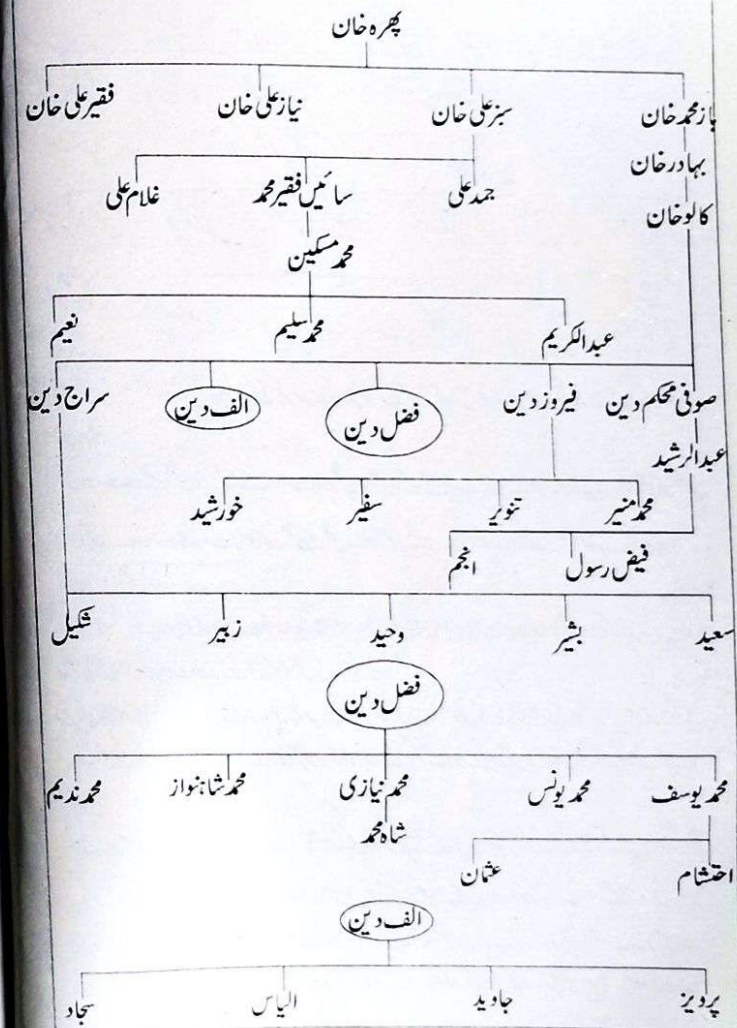 پھرہ خان
باز محمد خان سبز علی خان نیاز علی خان فقیر علی خان
بہادر خان
جمد علی سائیں فقیر محمد غلام علی
کالو خان
محمد مسکین
عبدالکریم محمد سلیم نعیم
صوفی محکم دین فیروز دین فضل دین الف دین سراج دین
عبدالرشید
محمد منیر تنویر سفیر خورشید
فیض رسول انجم
سعید بشیر وحید زبیر شکیل
فضل دین
محمد یوسف محمد یونس محمد نیازی محمد شاہنواز محمد ندیم
شاہ محمد
احتشام عثمان
الف دین
پرویز جاوید الیاس سجاد